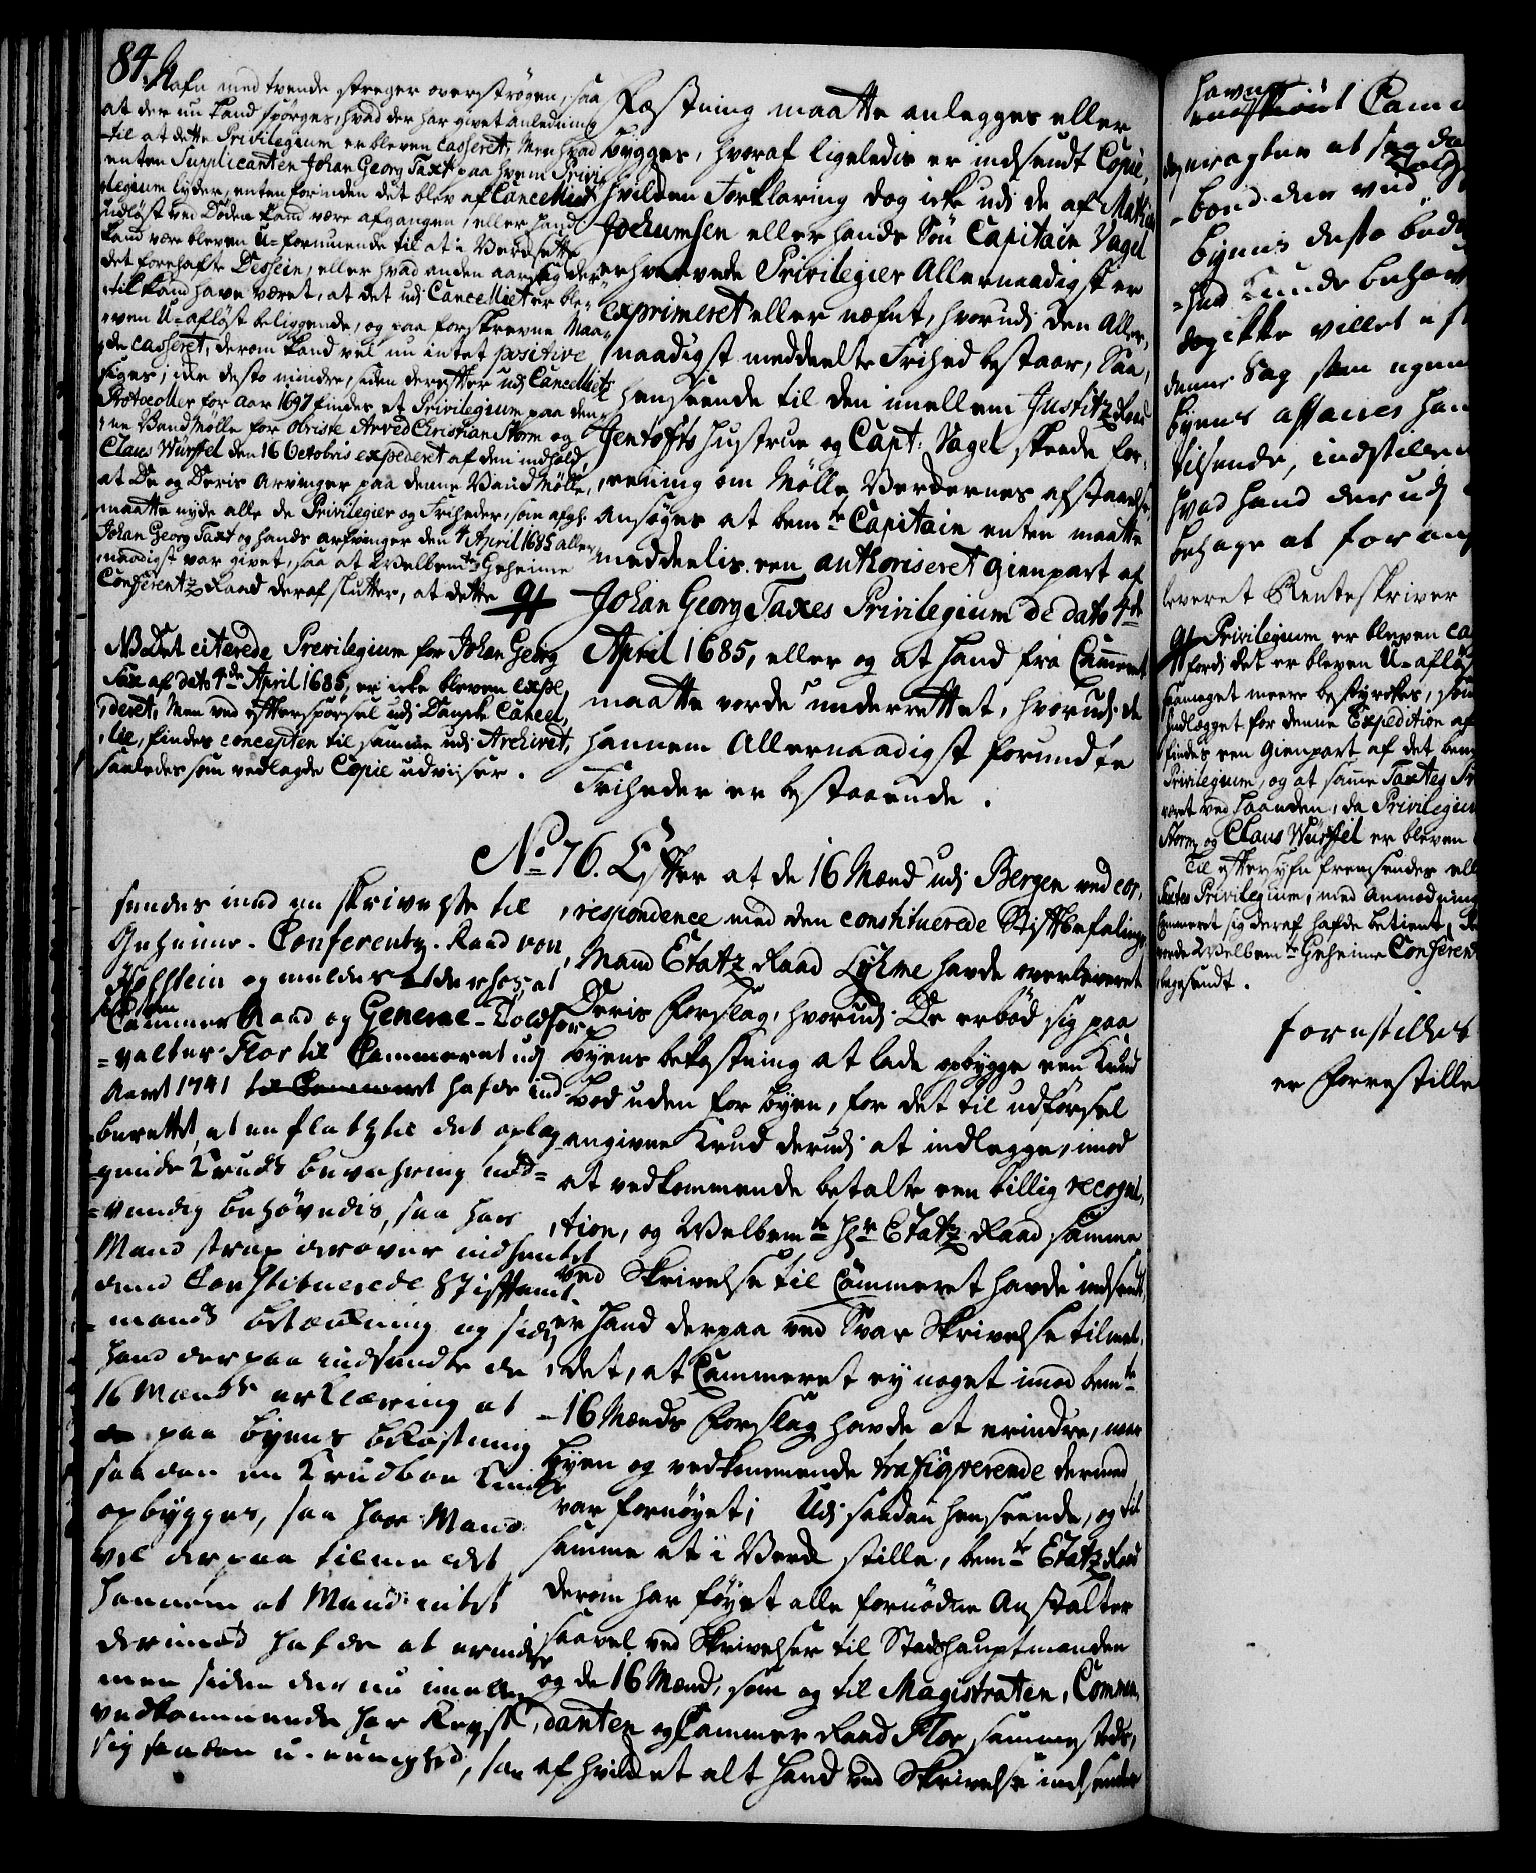 84.
Nafn med tvende streger overströgen, saa
at der nu kand spörges, hvad der har givet Anledning
til at dette Privilegium er bleven casseret, Men hvad
enten Supplicanten Johan Georg Taxt paa hvem Privi-
legium lyder, enten forinden det blev af Cancelliet
Indlöst ved Döden kand være afgangen, eller hand
kand være bleven U-formuende til at i Værcksette
det forehafte Dessein, eller hvad anden aarsag der
til kand have været, at det udj Cancelliet er ble-
ven U-aflöst beliggende, og paa forskrevne Maa-
de casseret, derom kand vel nu intet positive
siges; icke desto mindre, siden derefter udj Cancelliets
Protocoller for Aar 1697 findes et Privilegium paa den-
ne Vand Mölle for Obriste Arved Christian Storm og
Claus Würffel den 16 Octobris expederet af den indhold,
at De og Deris Arvinger paa denne Vand Mölle,
maatte nyde alle de Privilegier og Friheder, som afgl.
Johan Georg Taxt og hands arfvinger den 4 April 1685 aller-
naadigst var givet, saa at Velbemte Geheime
Conferentz Raad deraf slutter, at dette
NB. Det citerede Previlegium for Johan Georg
Tax af dato 4de April 1685, er icke bleven expe-
deret, Men ved efterspörsel udj Danske Cancel-
lie, findes concepten til samme udj Archivet,
saaledes som vedlagde Copie udviiser.
Fæstning maatte anlegges eller
bygges, hvoraf ligeledis er indsendt Copie,
hvilken Forklaring dog icke udj de af Mathias
Jochumsen eller hands Sön Capitain Vagel
erhvervede Privilegier Allernaadigst er
exprimeret eller næfnt, hvorudj den Aller-
naadigst meddeelte Frihed bestaar, Saa
henseende til den imellem Justitz Raad
Jentofts Hustrue og Capt: Vagel skeede for-
eening om Mölle Verckernes afstaaelse,
ansöges at bemte Capitain enten maatte
meddeelis een authoriseret Gienpart af
Johan Georg Taxes Privilegium de dato 4de
April 1685, eller og at hand fra Cammeret
maatte vorde underrettet, hvorudj de
hannem Allernaadigst forundte
Friheder er bestaaende.
No 76. Efter at de 16 Mænd udj Bergen ved cor-
respondence med den constituerede Stiftbefalings
Mand Etatz Raad Lyhme havde overleveret
Deris Forslag, hvorudj De erböd sig paa
Byens bekostning at lade opbygge een Krud
bod uden for Byen, for det til udförsel
angivne Krud derudj at indlegges, imod
at vedkommende betalte een billig recogni-
tion, og Velbemte Hr Etatz Raad samme
ved Skrivelse til Cammeret havde indsendt,
er Hand derpaa ved Svar Skrivelse tilmel-
det, at Cammeret ey noget imod bemte
16 Mænds Forslag havde at erindre, naar
Byen og vedkommende trafiqverende dermed
var fornöyet; Udj saadan henseende, og til
samme at i Værck stille, bemte Etatz Raad
derom har föyet alle fornödne Anstalter
saavel ved Skrivelser til Stadshauptmanden
og de 16 Mænd, som og til Magistraten, Commen-
danten og Cammer Raad Flor sammesteds,
af hvilket alt Hand ved Skrivelse indsender
sendes med en skrivelse til
Geheime-Conferentz-Raad von
Holstein og meldes derhos, at
siden
Cammer Raad og General-Toldfor-
valter Flor til Cammeret udj
Aaret 1741 hafde ind-
berettet, at en plads til det oplæg-
gende Kruds bevahring nöd-
vendig behøvedis, saa har
Mand strax derover indhentet
dend Constituerede Stiftamt-
mands betænkning og siden
hand derpaa indsendte de
16 Mænds erklæring at
paa byens bekostning
saadan en Krudboe kunde
opbygges, saa har Mand
vel derpaa tilmeldet
hannem at Mand intet
derimod hafde at erindre
men siden der nu imellem
vedkommende har Reyst
sig saadan u-eenighed, saa
havn
Cam
eragter at sag
-bord der ved
byens desto bedre
-hed kunde behov
dog ikke villet
denne Sag som
byens affaires
tilsende, indstille
hvad hand der udj
behage at foran
leveret Renteskriver
Privilegium er bleven ca
fordj det er bleven U-aflöst
meere bestyrckes, som
Indlægget for denne Expedition af
findes een Gienpart af det bem
Privilegium, og at samme Taxtes Pr
været ved haanden, da Privilegium
Storm og Claus Würffel er bleven
Til eftersyn fremsendes
Taxtes Privilegium, med Anmodning
Cammeret sig deraf hafde betient,
Velbemte Geheime Conferen
tilbagesendt.
forestilles
er Forestille